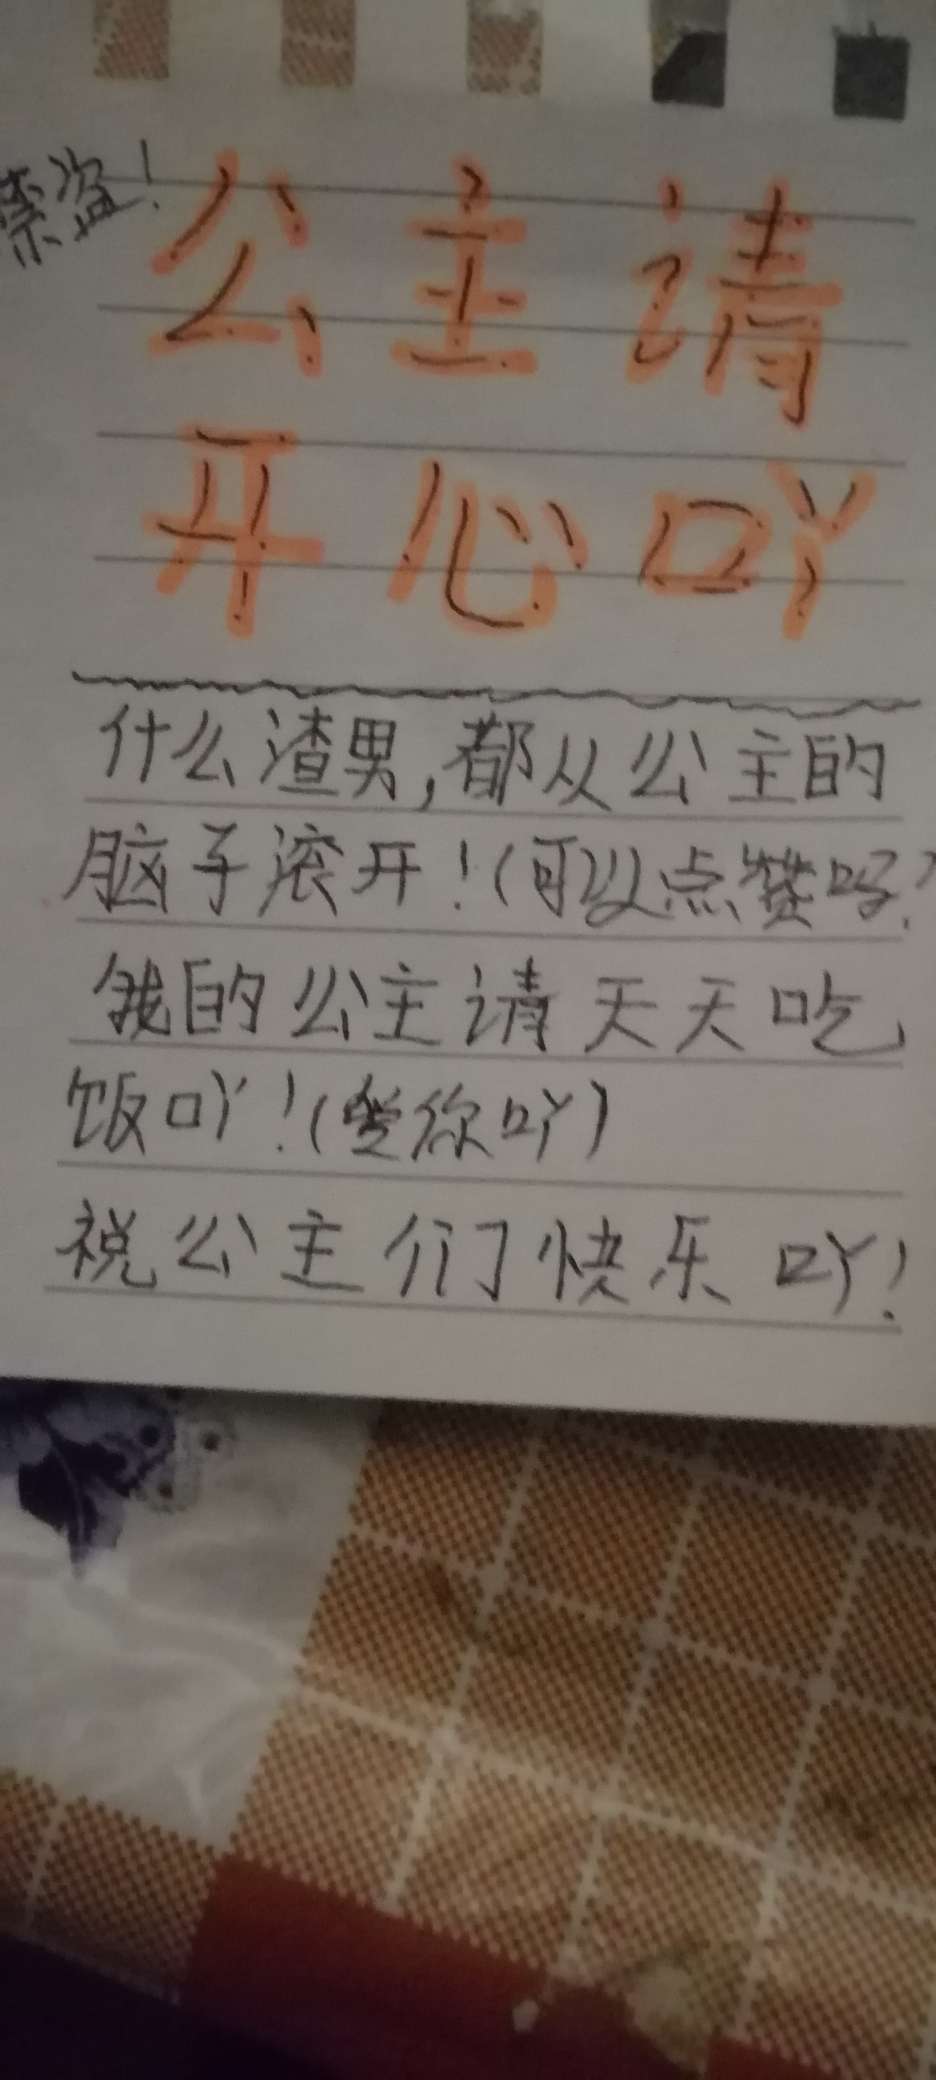 禁盗!
公主请
开心吖
什么渣男,都从公主的
脑子滚开!(可以点赞吗?
我的公主请天天吃
饭吖!(爱你吖)
祝公主们快乐吖!